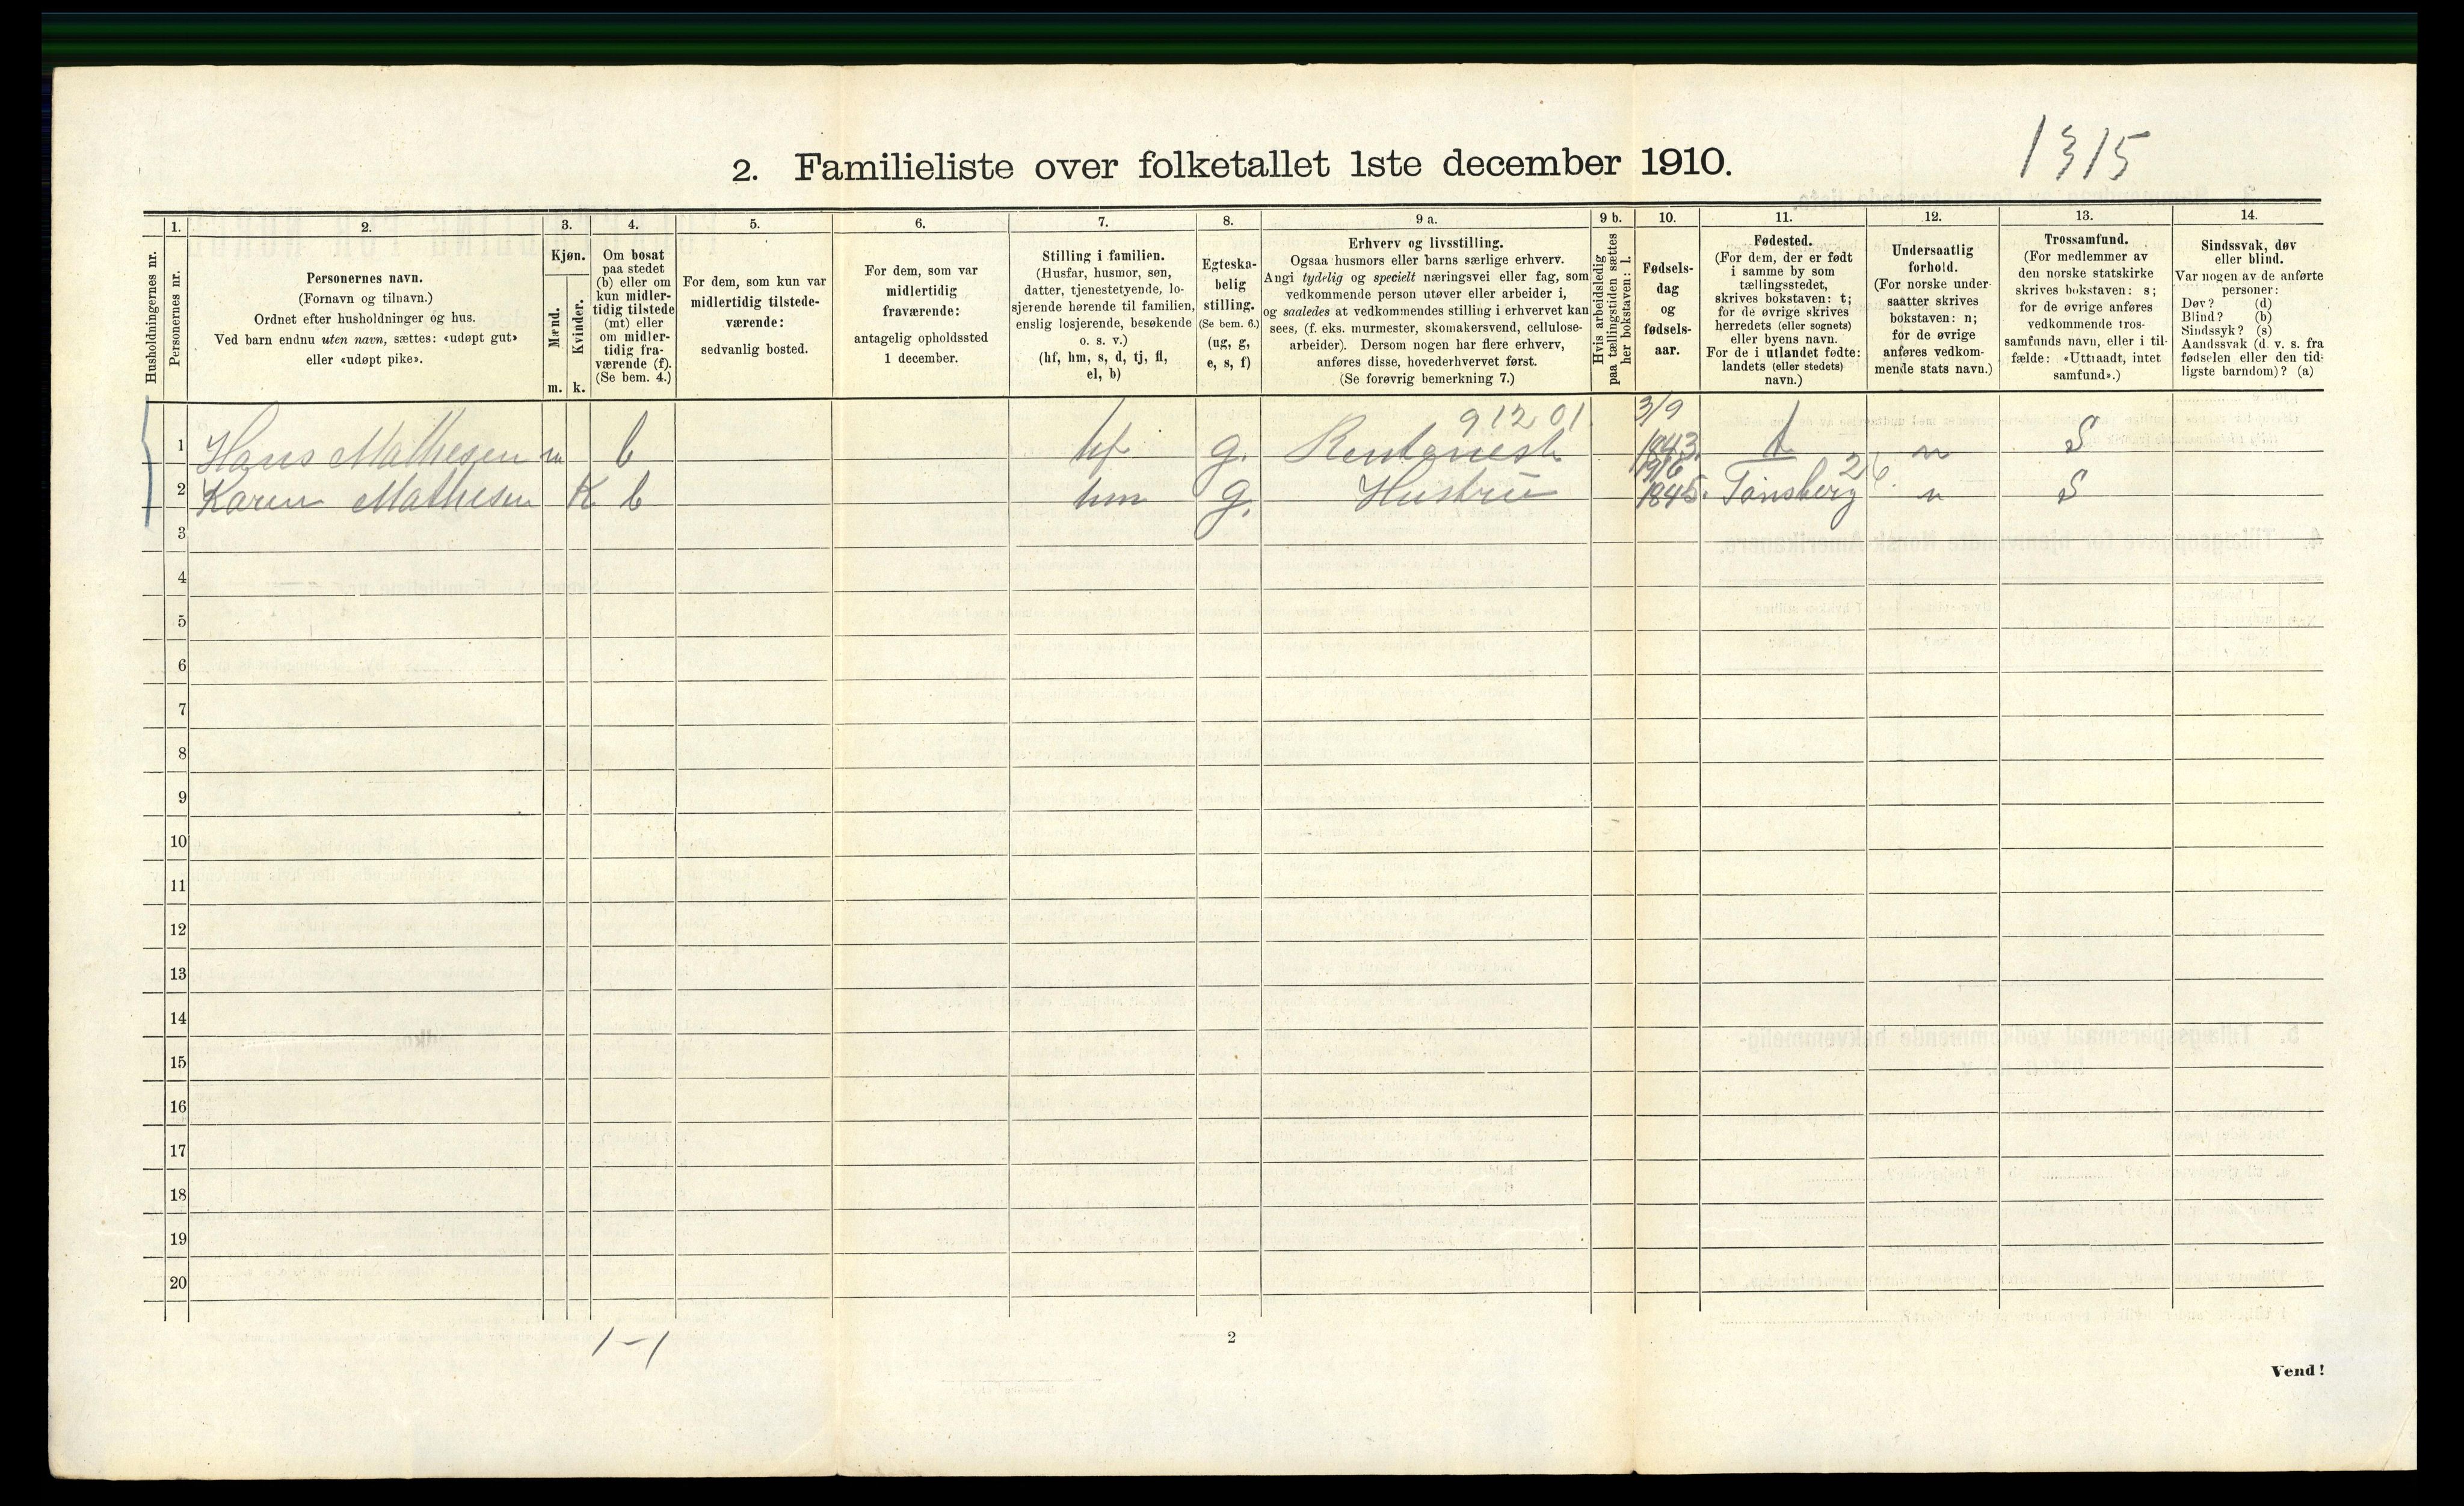 1315
2. Familieliste over folketallet 1ste december 1910.
1. 2. 3. 4. 5. 6. 7. 8. 9 a. 9 b. 10. 11. 12. 13. 14.
Husholdningernes nr.
Personernes nr.
Personernes navn.
(Fornavn og tilnavn.)
Ordnet efter husholdninger og hus.
Ved barn endnu uten navn, sættes: «udøpt gut»
eller «udøpt pike».
Kjøn.
Mænd.
Kvinder.
m. k.
Om bosat
paa stedet
(b) eller om
kun midler-
tidig tilstede
(mt) eller
om midler-
tidig fra-
værende (f).
(Se bem. 4.)
For dem, som kun var
midlertidig tilstede-
værende:
sedvanlig bosted.
For dem, som var
midlertidig
fraværende:
antagelig opholdssted
1 december.
Stilling i familien.
(Husfar, husmor, søn,
datter, tjenestetyende, lo-
sjerende hørende til familien,
enslig losjerende, besøkende
o. s. v.)
(hf, hm, s, d, tj, fl,
el, b)
Egteska-
belig
stilling.
(Se bem. 6.)
(ug, g,
e, s, f)
Erhverv og livsstilling.
Ogsaa husmors eller barns særlige erhverv.
Angi tydelig og specielt næringsvei eller fag, som
vedkommende person utøver eller arbeider i,
og saaledes at vedkommendes stilling i erhvervet kan
sees, (f. eks. murmester, skomakersvend, cellulose-
arbeider). Dersom nogen har flere erhverv,
anføres disse, hovederhvervet først.
(Se forøvrig bemerkning 7.)
Hvis arbeidsledig
paa tællingstiden sættes
her bokstaven: l.
Fødsels-
dag
og
fødsels-
aar.
Fødested.
(For dem, der er født
i samme by som
tællingsstedet,
skrives bokstaven: t;
for de øvrige skrives
herredets (eller sognets)
eller byens navn.
For de i utlandet fødte:
landets (eller stedets)
navn.)
Undersaatlig
forhold.
(For norske under-
saatter skrives
bokstaven: n;
for de øvrige
anføres vedkom-
mende stats navn.)
Trossamfund.
(For medlemmer av
den norske statskirke
skrives bokstaven: s;
for de øvrige anføres
vedkommende tros-
samfunds navn, eller i til-
fælde: «Uttraadt, intet
samfund».)
Sindssvak, døv
eller blind.
Var nogen av de anførte
personer:
Døv? (d)
Blind? (b)
Sindssyk? (s)
Aandssvak (d. v. s. fra
fødselen eller den tid-
ligste barndom)? (a)
91201 3/9
1 Hans Mathesen m b hf g. Rentenist 1843. t n S
19/6 26
2 Karen Mathesen K b hm g. Hustru 1845. Tønsberg n S
3
4
5
6
7
8
9
10
11
12
13
14
15
16
17
18
19
20
1-1
2
Vend!